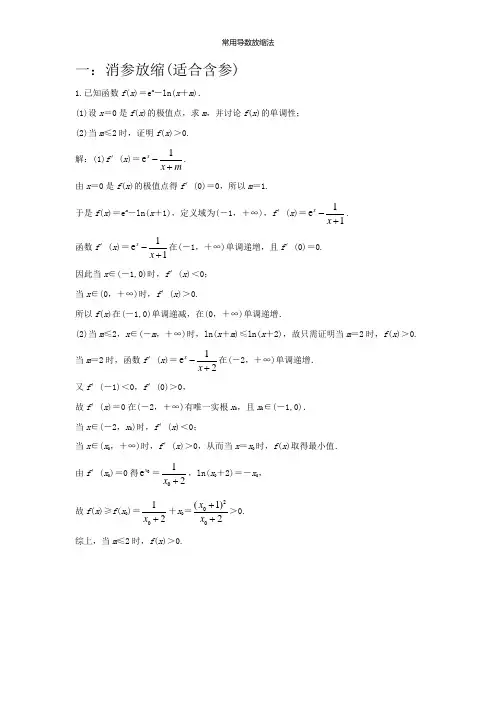 常用导数放缩法
一：消参放缩(适合含参)
1.已知函数 f(x)＝eˣ－ln(x＋m)．
(1)设 x＝0 是 f(x)的极值点，求 m，并讨论 f(x)的单调性；
(2)当 m≤2 时，证明 f(x)＞0.
解：(1)f′(x)＝eˣ－1/(x＋m).
由 x＝0 是 f(x)的极值点得 f′(0)＝0，所以 m＝1.
于是 f(x)＝eˣ－ln(x＋1)，定义域为(－1，＋∞)，f′(x)＝eˣ－1/(x＋1).
函数 f′(x)＝eˣ－1/(x＋1)在(－1，＋∞)单调递增，且 f′(0)＝0.
因此当 x∈(－1,0)时，f′(x)＜0；
当 x∈(0，＋∞)时，f′(x)＞0.
所以 f(x)在(－1,0)单调递减，在(0，＋∞)单调递增．
(2)当 m≤2，x∈(－m，＋∞)时，ln(x＋m)≤ln(x＋2)，故只需证明当 m＝2 时，f(x)＞0.
当 m＝2 时，函数 f′(x)＝eˣ－1/(x＋2)在(－2，＋∞)单调递增．
又 f′(－1)＜0，f′(0)＞0，
故 f′(x)＝0 在(－2，＋∞)有唯一实根 x₀，且 x₀∈(－1,0)．
当 x∈(－2，x₀)时，f′(x)＜0；
当 x∈(x₀，＋∞)时，f′(x)＞0，从而当 x＝x₀时，f(x)取得最小值．
由 f′(x₀)＝0 得 e^x₀＝1/(x₀＋2)，ln(x₀＋2)＝－x₀，
故 f(x)≥f(x₀)＝1/(x₀＋2)＋x₀＝(x₀＋1)²/(x₀＋2)＞0.
综上，当 m≤2 时，f(x)＞0.